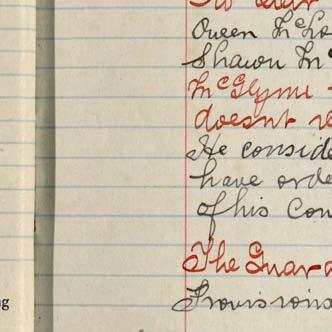 Owen McLo
Shawn Mc
McGlynn
doesnt re
He conside
have orde
of his Con
The Guara
Provisiona
ng